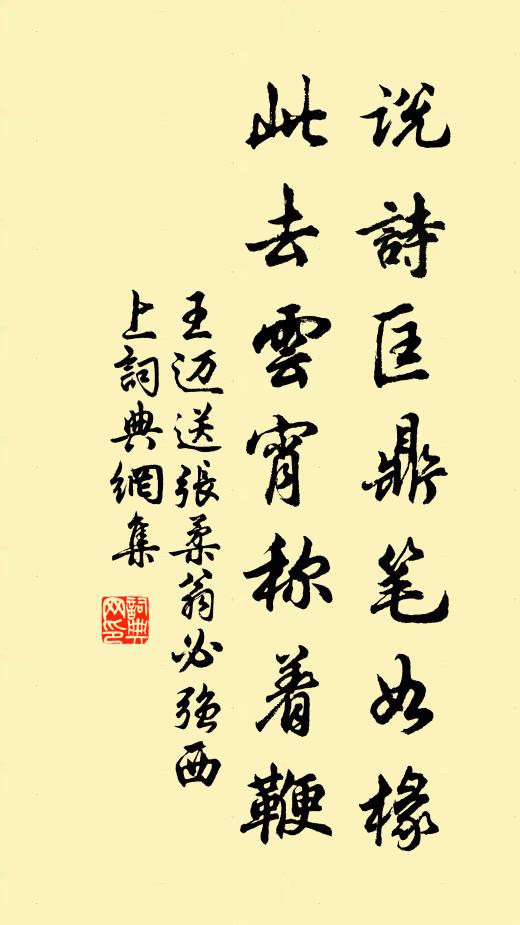 说詩匡鼎笔如椽
此去雲宵称着鞭
王迈送張柔翁必强西
上詞典網集
詞典网印